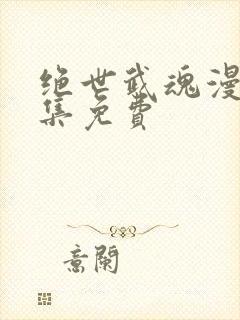 绝世武魂漫
集免费
意阑